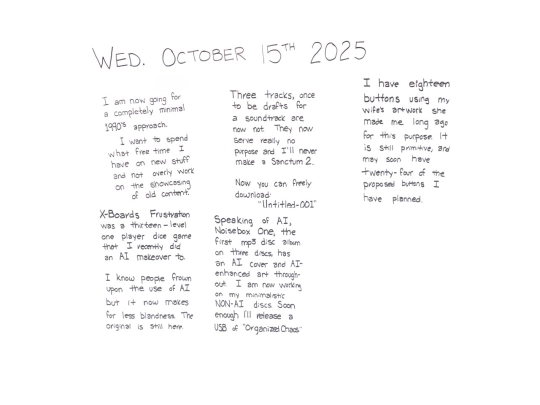 WED. OCTOBER 15TH 2025
I am now going for
a completely minimal
1990's approach.
I want to spend
what free time I
have on new stuff
and not overly work
on the showcasing
of old content.
X-Boards Frustration
was a thirteen-level
one player dice game
that I recently did
an AI makeover to.
I know people frown
upon the use of AI
but it now makes
for less blandness. The
original is still here.
Three tracks, once
to be drafts for
a soundtrack are
now not They now
serve really no
purpose and I'll never
make a Sanctum 2.
Now you can freely
download:
"Untitled-001"
Speaking of AI,
Noisebox One, the
first mp3 disc album
on three discs, has
an AI cover and AI-
enhanced art through-
out I am now working
on my minimalistic
NON-AI discs Soon
enough I'll release a
USB of "Organized Chaos"
I have eighteen
buttons using my
wife's artwork she
made me long ago
for this purpose It
is still primitive, and
may soon have
twenty-four of the
proposed buttons I
have planned.